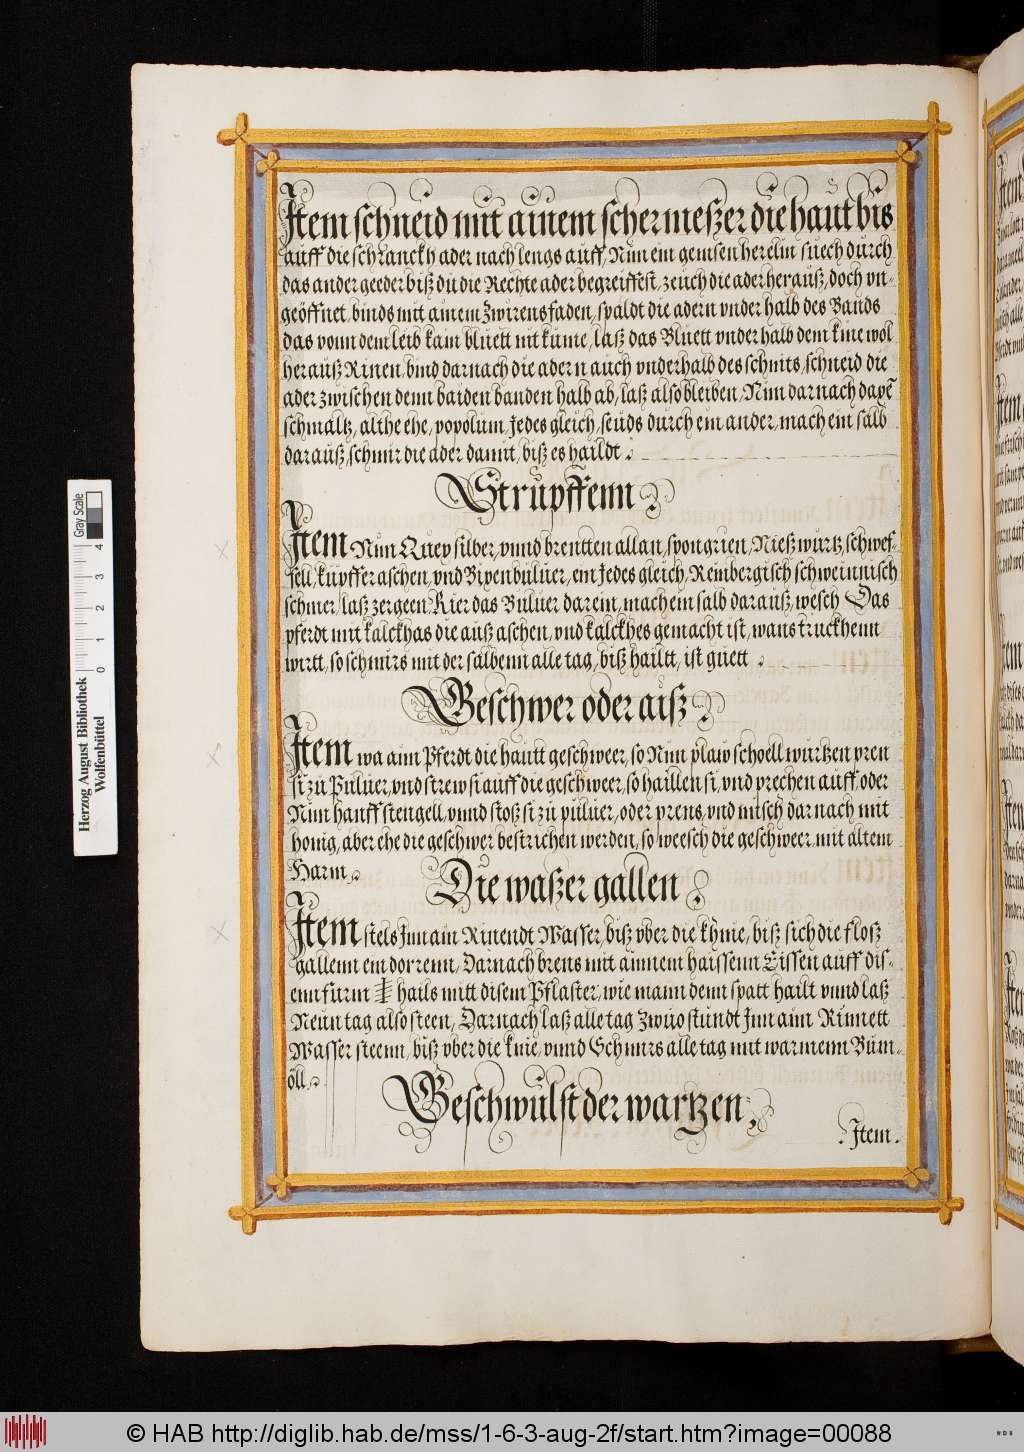 Item schneid mit ainem schermeßer die haut bis
auff die schranckh ader nach lengs auff, Nim ein gemsen herelin stiech durch
das ander geeder biß du die Rechte ader begreiffest, zeuch die ader herauß, doch vn-
geöffnet, binds mit ainem Zwirens faden, spaldt die adern vnder halb des Bands
das vonn dem leib kain bluett nit kume, laß das Bluett vnder halb dem knie wol
herauß Rinen, bind darnach die adern auch vnderhalb des schnits, schneid die
ader zwischen denn baiden banden halb ab, laß also bleiben, Nim darnach
schmaltz, althe ehe, popolium, Jedes gleich, seuds durch ein ander, mach ein salb
darauß, schmir die ader damit, biß es haildt.
Strupffenn
Item Nim Quey silber, vnnd brentten allan, spongrien, Nießwurtz, schwef-
fell, kupffer aschen, vnd Bixenbuluer, ein Jedes gleich, Reinbergisch schweinnisch
schmer, laß zergeen Rier das Buluer darein, mach ein salb darauß, wesch Das
pferdt mit kalckhas die auß aschen, vnd kalckhes gemacht ist, wans truckhenn
wirtt, so schmirs mit der salbenn alle tag, biß hailtt, ist guett.
Geschwer oder aiß
Item wa aim Pferdt die hautt geschweer, so Nim plaw schoell wurtzen pren
si zu Puluer, vnd strew si auff die geschweer, so haillen si, vnd prechen auff, oder
Nim hanff stengell, vnnd stoß si zu puluer, oder prens, vnd misch darnach mit
honig, aber ehe die geschwer bestrichen werden, so weesch die geschweer mit altem
Harm.
Die waßer gallen
Item stels Jnn ain Rinendt Wasser, biß vber die khnie, biß sich die floß
gallenn ein dorrenn, Darnach brens mit ainnem haissenn Eissen auff dis-
enn furm hails mitt disem Pflaster, wie mann denn spatt hailt vnnd laß
Neun tag also steen, Darnach laß alle tag Zwuo stundt Jnn aim Rinnett
Wasser steenn, biß vber die knie, vnnd Schmirs alle tag mit warmenn Bum-
öll.
Geschwulst der wartzen
Item.
Herzog August Bibliothek
Wolfenbüttel
Gray Scale
0 1 2 3 4
© HAB http://diglib.hab.de/mss/1-6-3-aug-2f/start.htm?image=00088